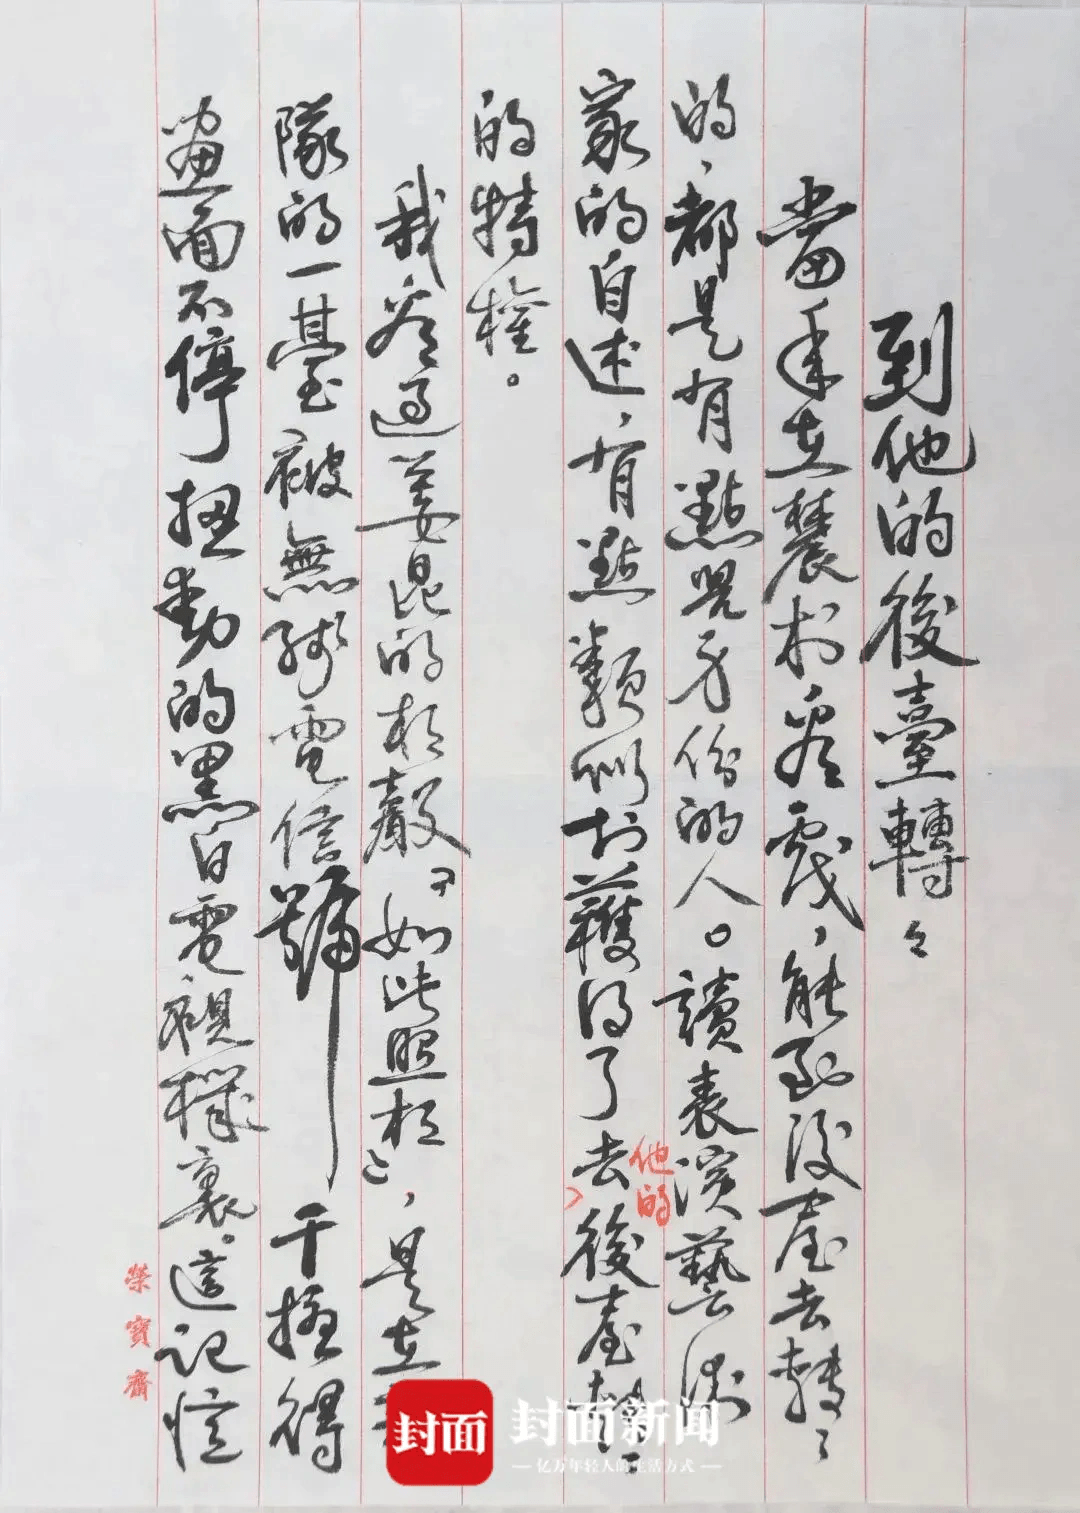 到他的後臺轉々
當年在農村看戲，能到後台去轉々
的，都是有點兒身份的人。讀表演藝術
家的自述，有點類似於獲得了去後台轉々
他的
的特權。
我看過姜昆的相聲『如此照相』，是在
隊的一臺被無綫電信號干擾得
畫面不停扭動的黑白電視機裏。這記憶
榮寶齋
封面
封面新闻
亿万年轻人的生活方式